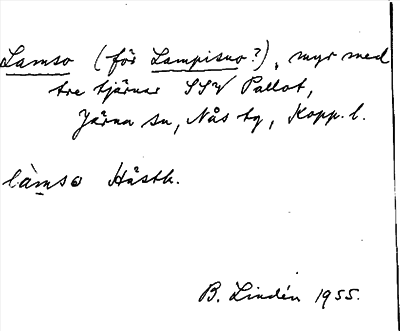 Lamso (för Lampisuo?), myr med
tre tjärnar SSV Pallot,
Järna sn, Nås tg, Kopp. l.
làmsо Håstb.
B. Lindén 1955.